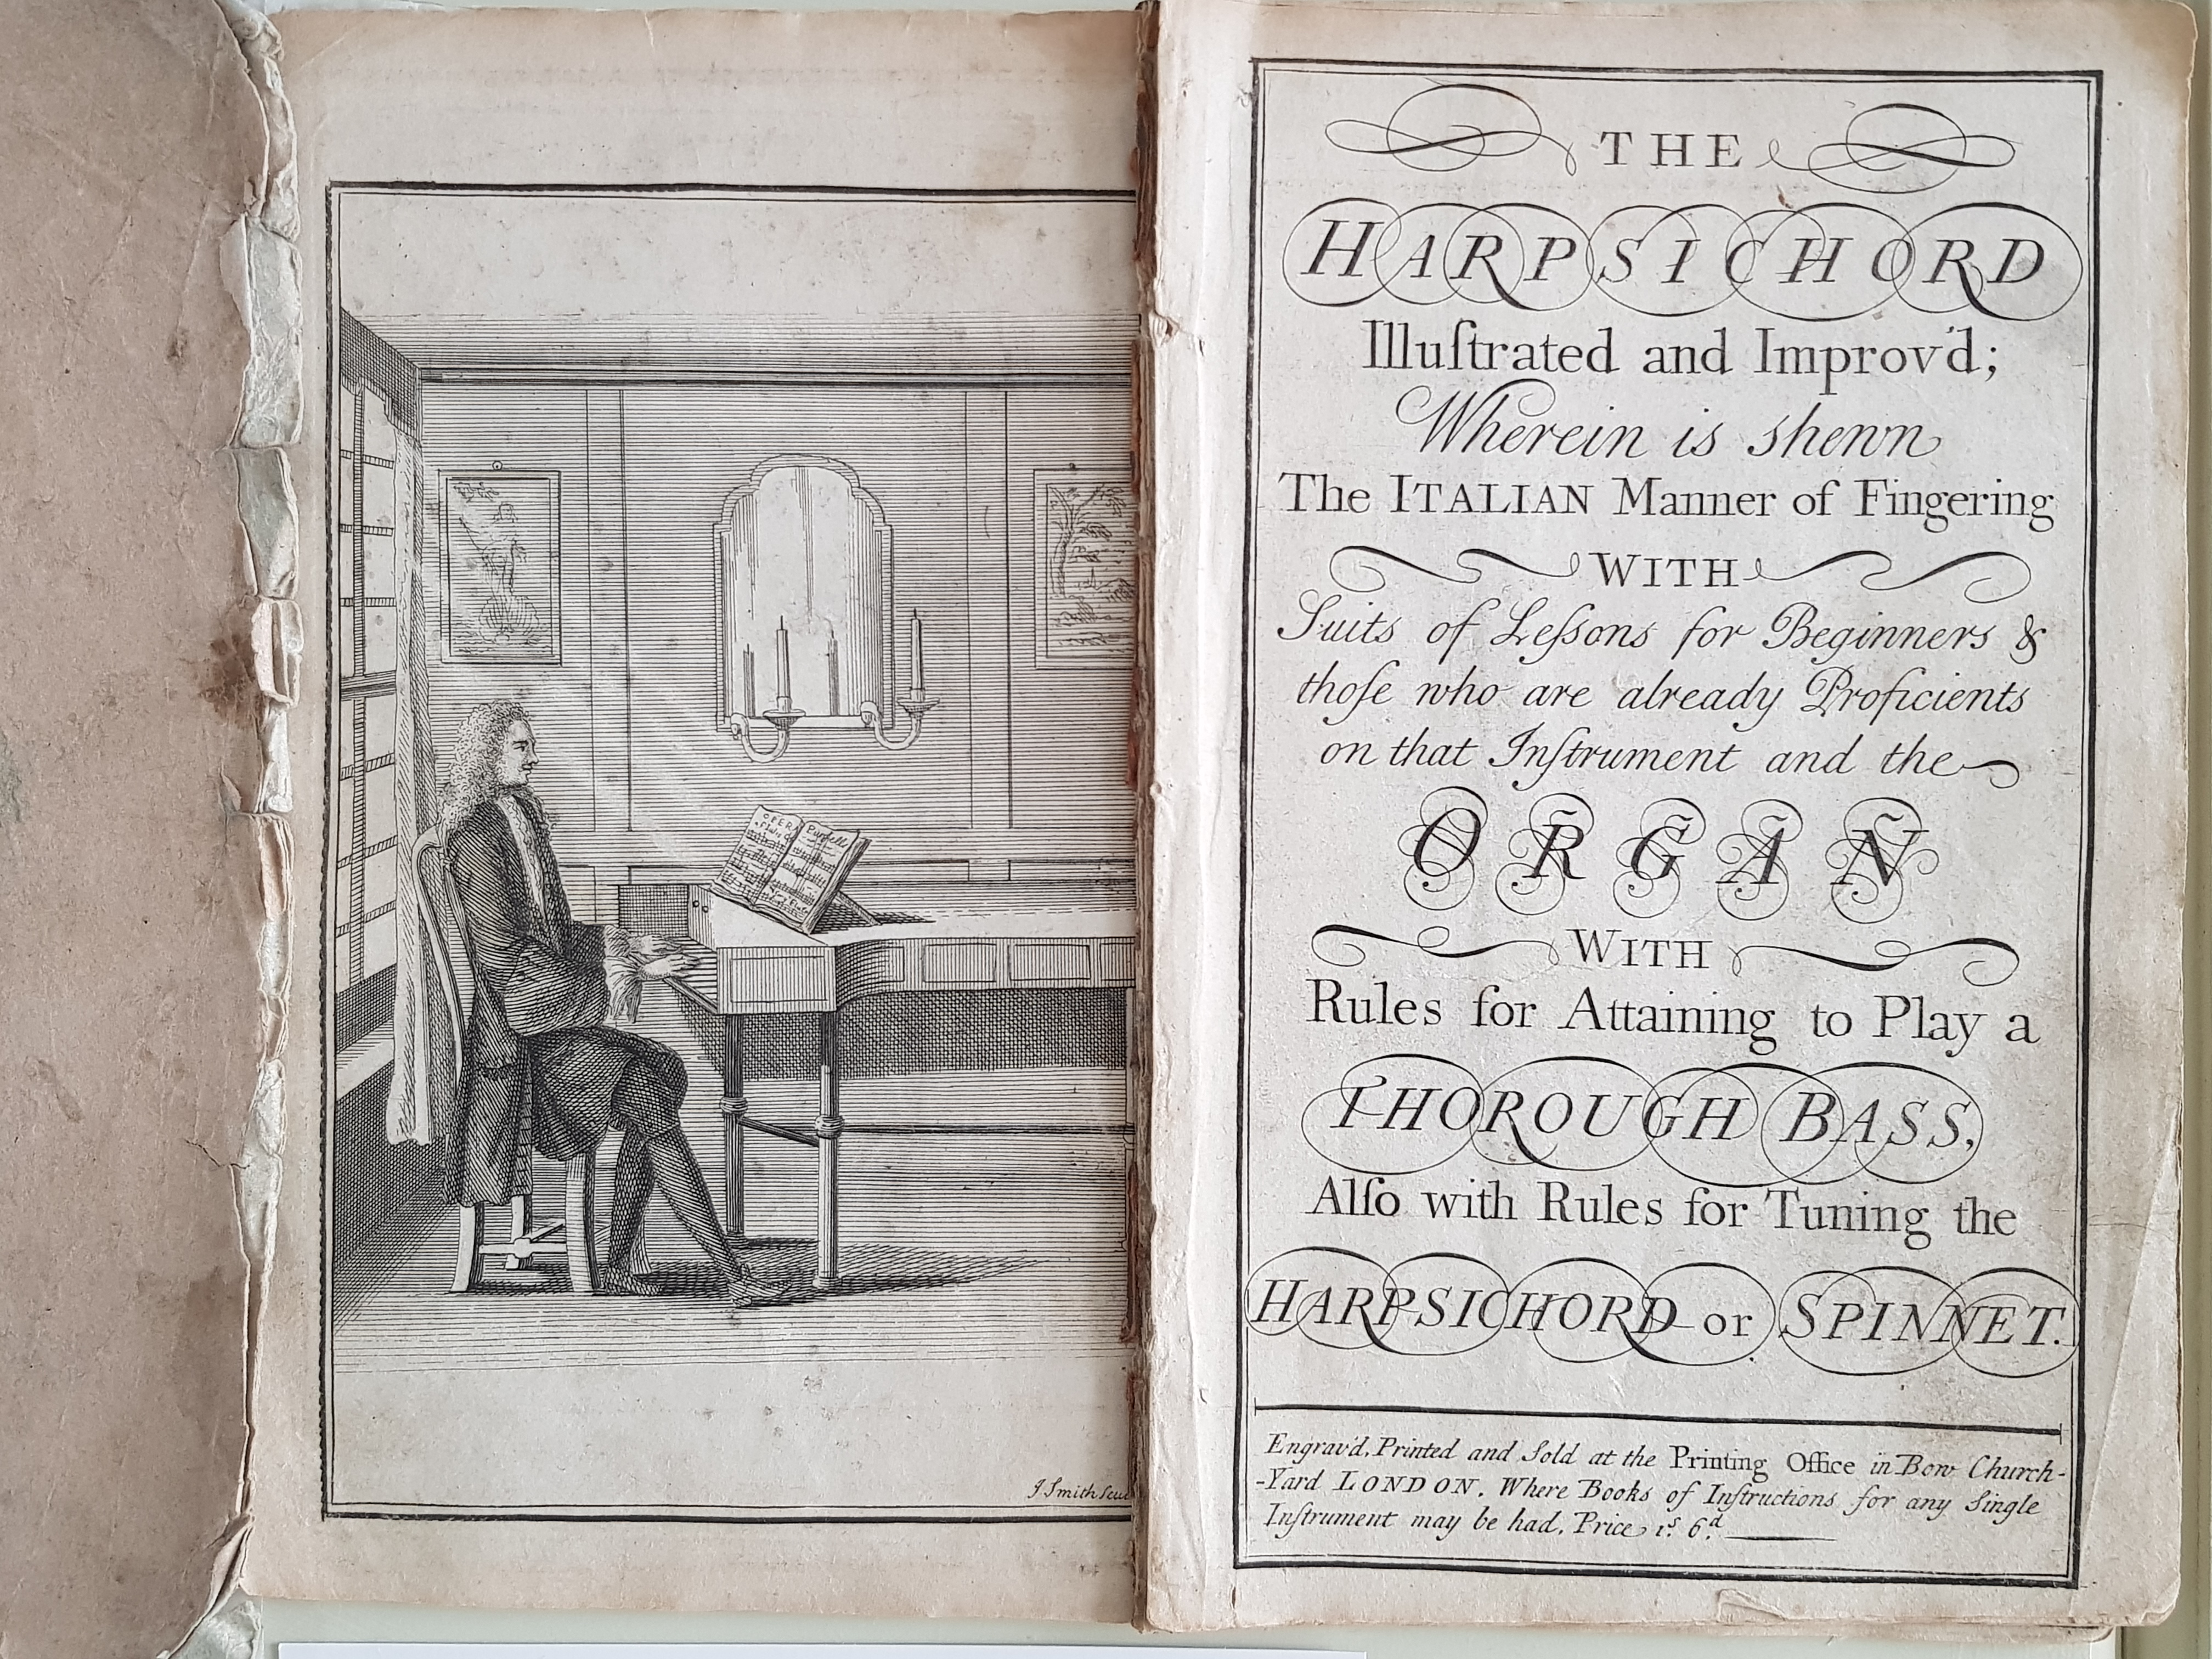 OPERA
Purchell
J. Smith Scu
THE
HARPSICHORD
Illuſtrated and Improv'd;
Wherein is shewn
The ITALIAN Manner of Fingering
WITH
Suits of Leſsons for Beginners &
thoſe who are already Proficients
on that Inſtrument and the
ORGAN
WITH
Rules for Attaining to Play a
THOROUGH BASS,
Alſo with Rules for Tuning the
HARPSICHORD or SPINNET.
Engrav'd, Printed and Sold at the Printing Office in Bow Church-
-Yard LONDON. Where Books of Inſtructions for any Single
Inſtrument may be had. Price 1ˢ. 6ᵈ.